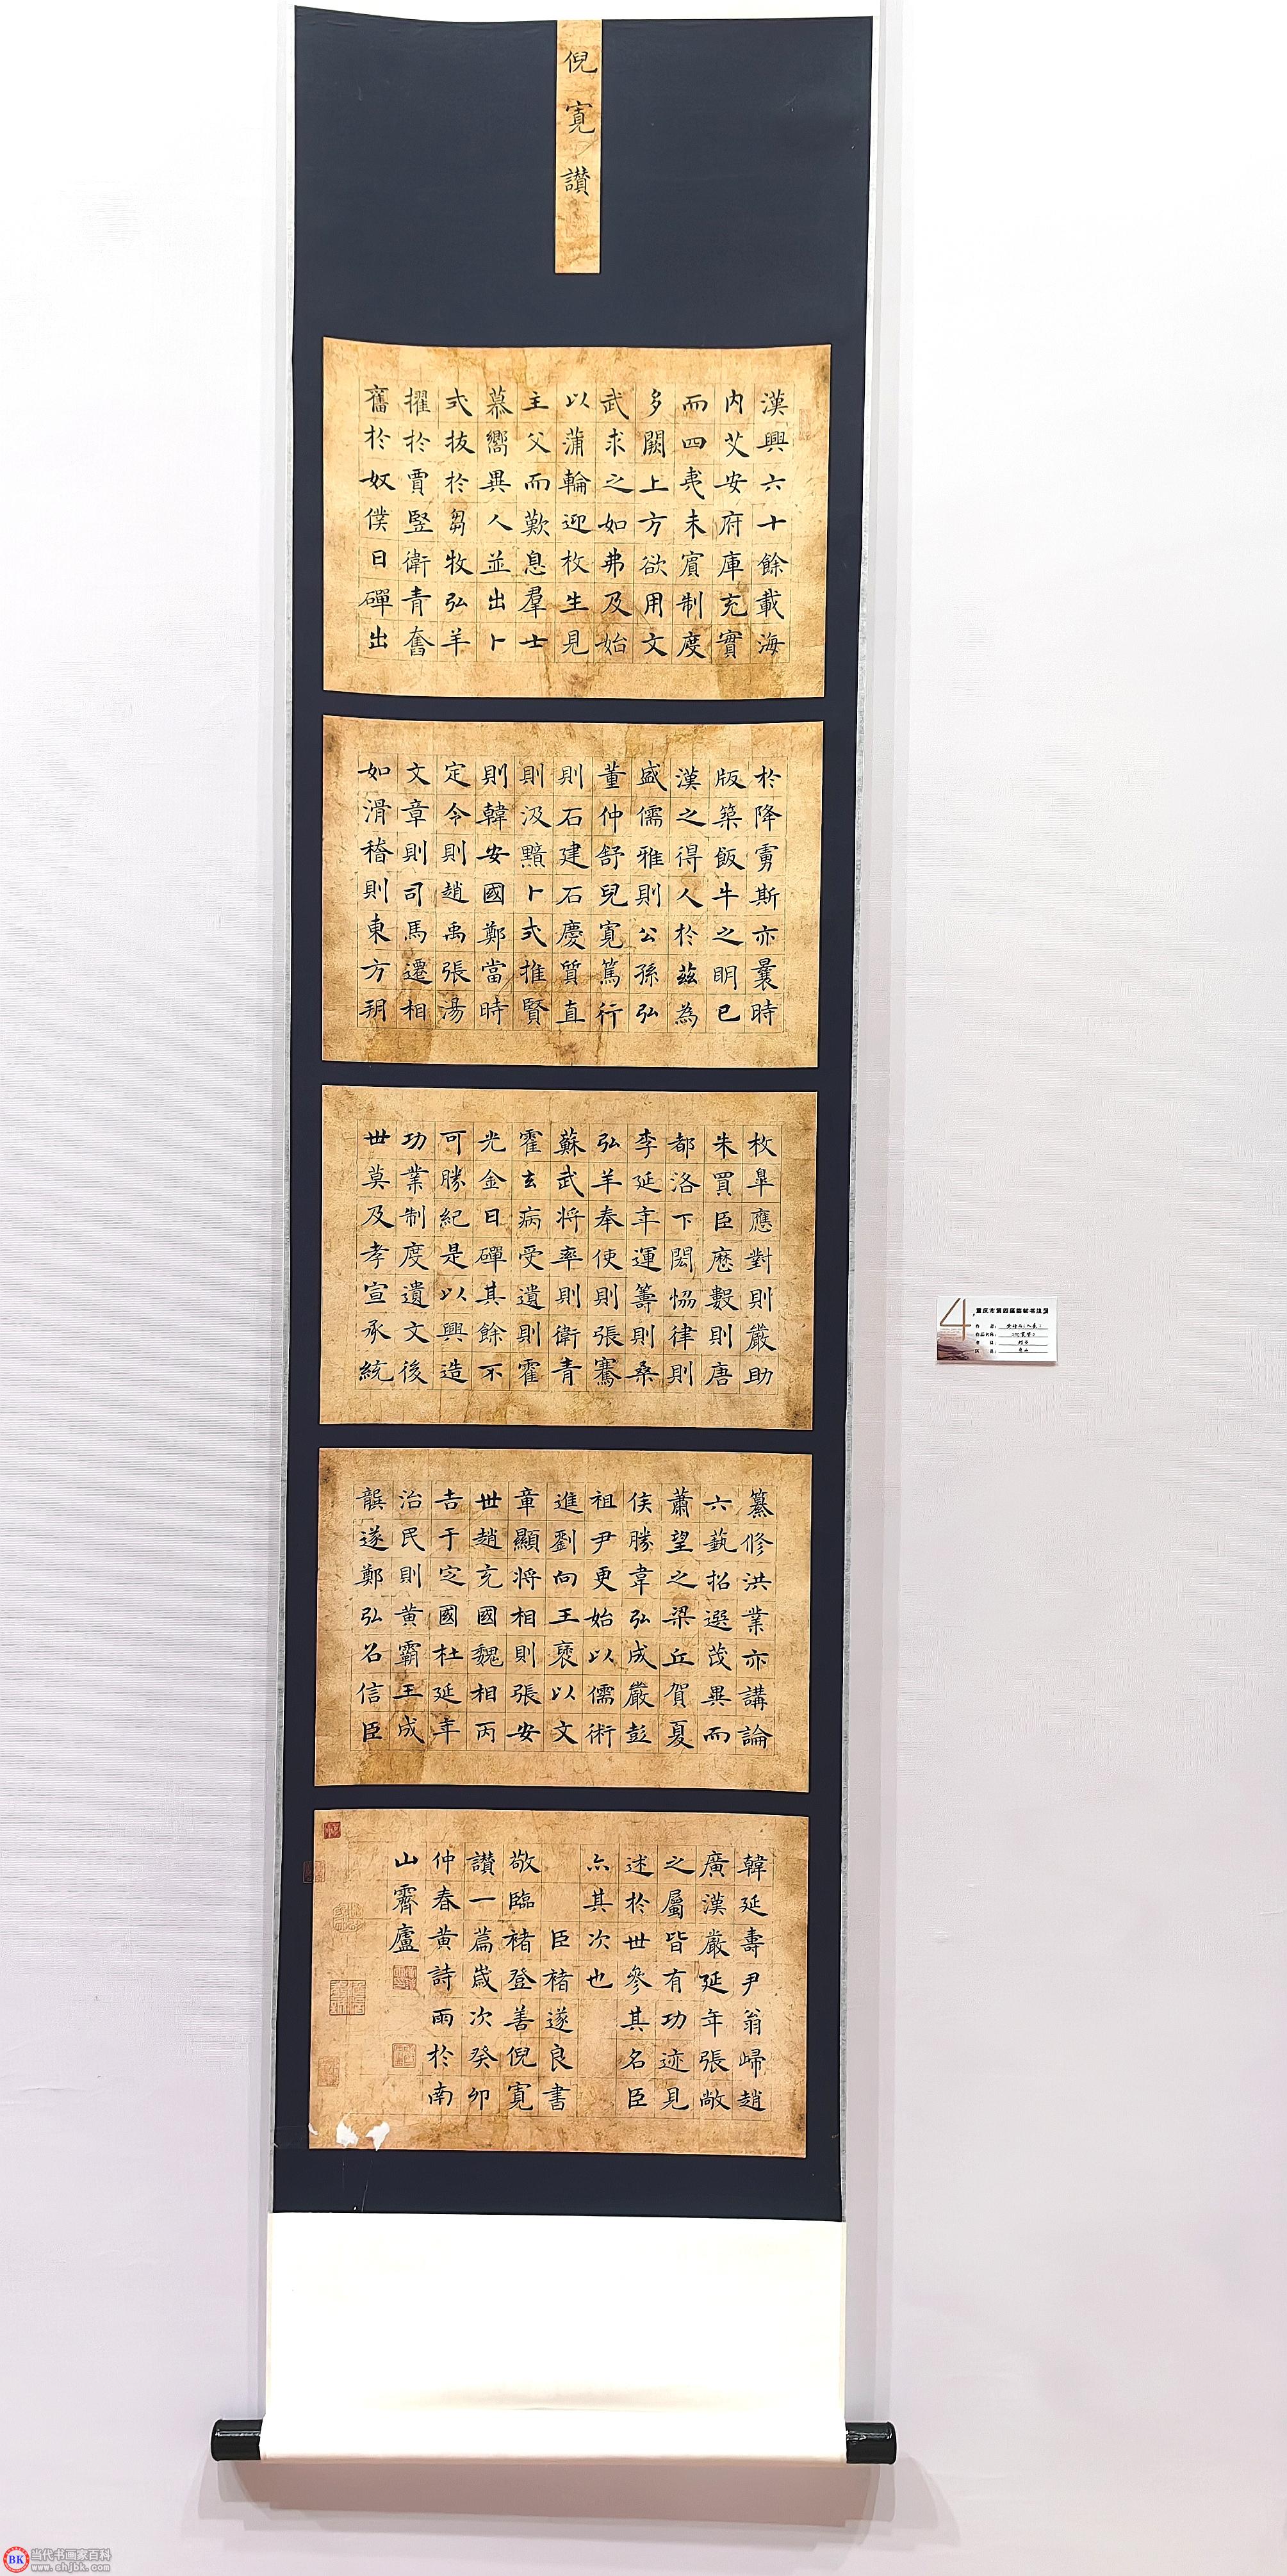 倪寛讃
漢興六十餘載海
内艾安府庫充實
而四夷未賓制度
多闕上方欲用文
武求之如弗及始
以蒲輪迎枚生見
主父而歎息羣士
慕嚮異人並出卜
式抜於芻牧弘羊
擢於賈竪衛青奮
舊於奴僕日磾出
於降虜斯亦曩時
版築飯牛之明已
漢之得人於茲為
盛儒雅則公孫弘
董仲舒兒寛篤行
則石建石慶質直
則汲黯卜式推賢
則韓安國鄭當時
定令則趙禹張湯
文章則司馬遷相
如滑稽則東方朔
枚臯應對則嚴助
朱買臣厯數則唐
都洛下閎恊律則
李延年運籌則桑
弘羊奉使則張騫
蘇武将率則衛青
霍去病受遺則霍
光金日磾其餘不
可勝紀是以興造
功業制度遺文後
世莫及孝宣承統
纂修洪業亦講論
六藝招選茂異而
蕭望之梁丘賀夏
侯勝韋弘成嚴彭
祖尹更始以儒術
進劉向王襃以文
章顯将相則張安
世趙充國魏相丙
吉于定國杜延年
治民則黄霸王成
龔遂鄭弘召信臣
韓延壽尹翁歸趙
廣漢嚴延年張敞
之屬皆有功迹見
述於世參其名臣
亦其次也
臣褚遂良書
敬臨褚登善倪寛
讃一篇歲次癸卯
仲春黄詩雨於南
山霽廬
4
重庆市第四届临帖书法展
作品名称:《倪寛賛》
BK 当代书画家百科
www.shjbk.com